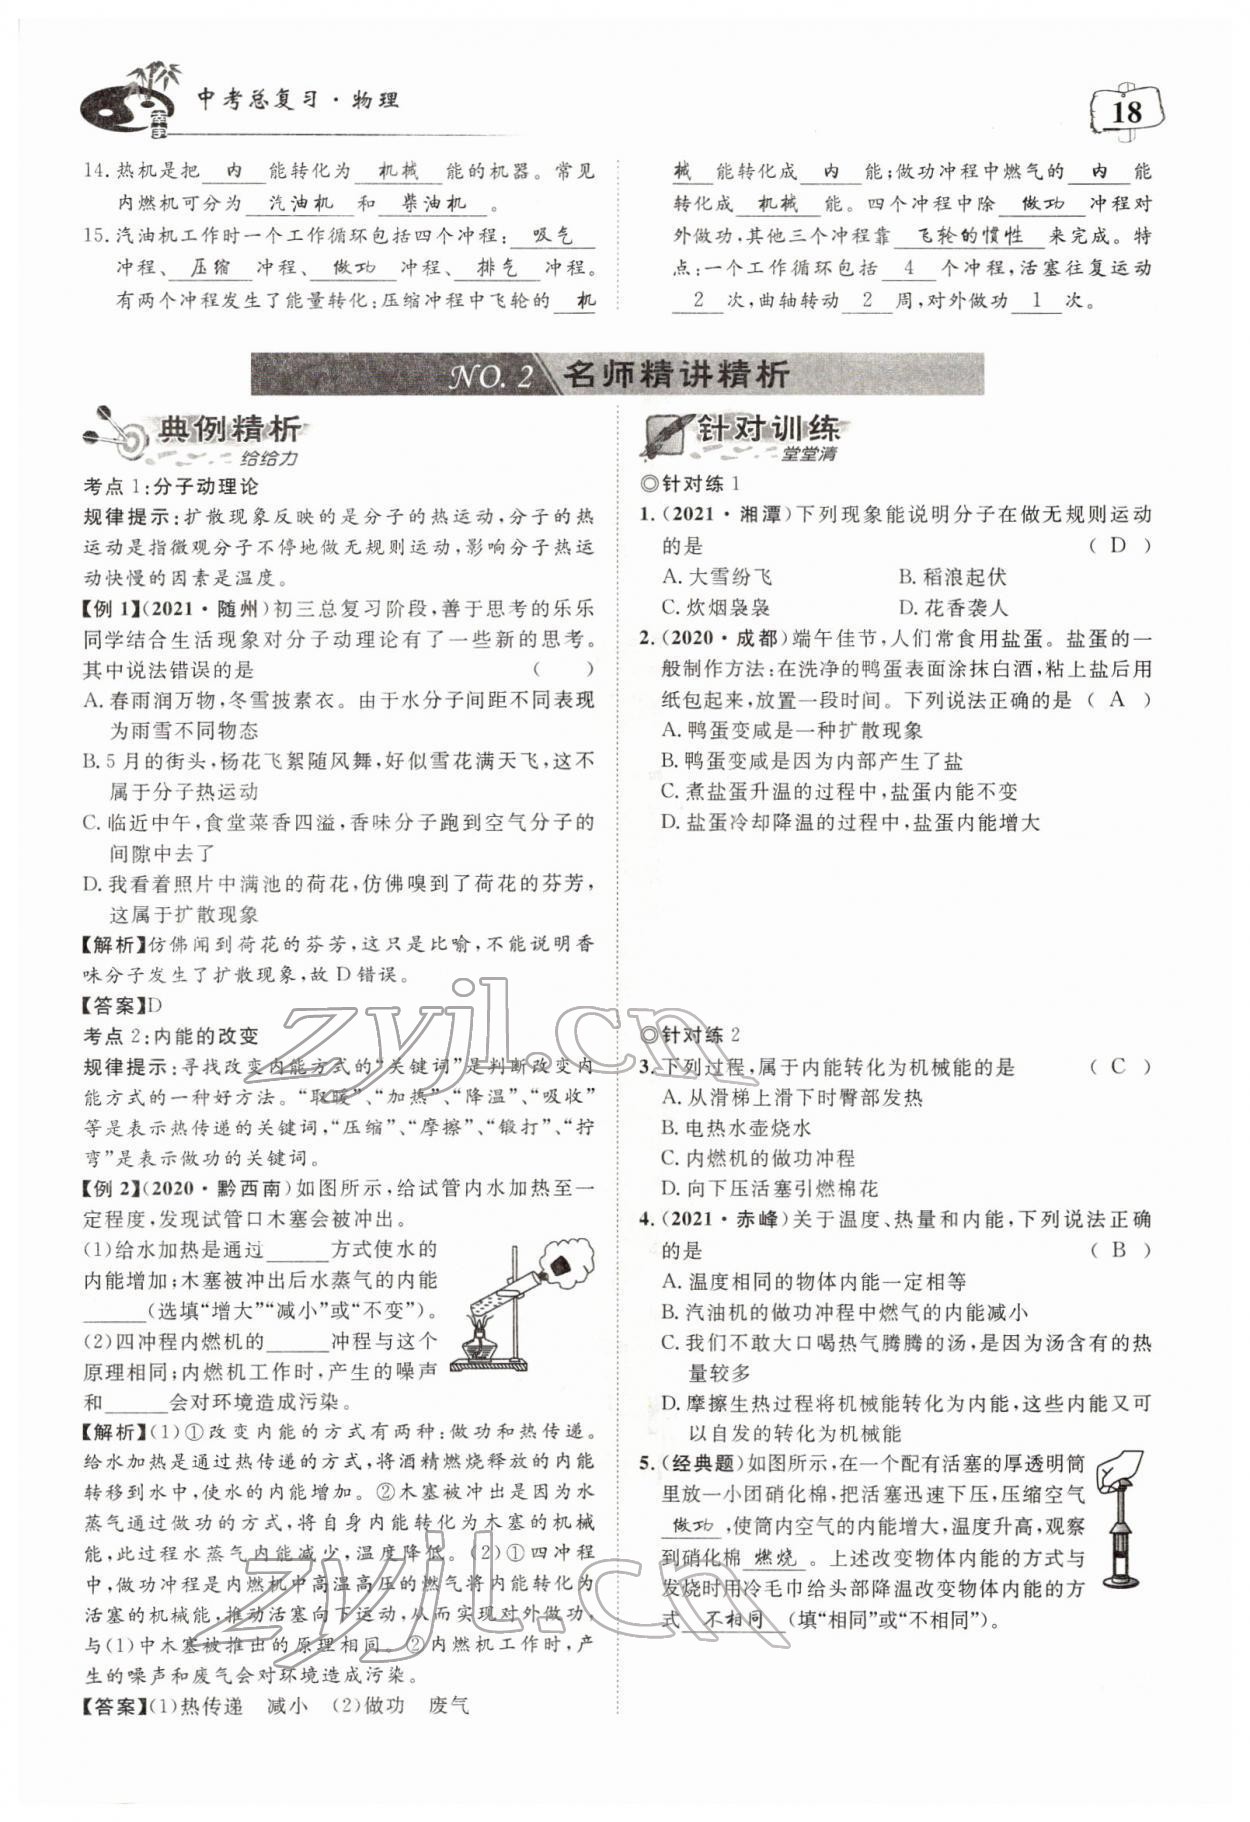 中考总复习·物理
18
14. 热机是把 内 能转化为 机械 能的机器。常见
内燃机可分为 汽油机 和 柴油机 。
15. 汽油机工作时一个工作循环包括四个冲程: 吸气
冲程、 压缩 冲程、 做功 冲程、 排气 冲程。
有两个冲程发生了能量转化:压缩冲程中飞轮的 机
械 能转化成 内 能;做功冲程中燃气的 内 能
转化成 机械 能。四个冲程中除 做功 冲程对
外做功,其他三个冲程靠 飞轮的惯性 来完成。特
点:一个工作循环包括 4 个冲程,活塞往复运动
2 次,曲轴转动 2 周,对外做功 1 次。
NO. 2 名师精讲精析
典例精析
给给力
考点 1:分子动理论
规律提示:扩散现象反映的是分子的热运动,分子的热
运动是指微观分子不停地做无规则运动,影响分子热运
动快慢的因素是温度。
【例 1】(2021·随州)初三总复习阶段,善于思考的乐乐
同学结合生活现象对分子动理论有了一些新的思考。
其中说法错误的是 ( )
A. 春雨润万物,冬雪披素衣。由于水分子间距不同表现
为雨雪不同物态
B. 5 月的街头,杨花飞絮随风舞,好似雪花满天飞,这不
属于分子热运动
C. 临近中午,食堂菜香四溢,香味分子跑到空气分子的
间隙中去了
D. 我看着照片中满池的荷花,仿佛嗅到了荷花的芬芳,
这属于扩散现象
【解析】仿佛闻到荷花的芬芳,这只是比喻,不能说明香
味分子发生了扩散现象,故 D 错误。
【答案】D
考点 2:内能的改变
规律提示:寻找改变内能方式的“关键词”是判断改变内
能方式的一种好方法。“取暖”、“加热”、“降温”、“吸收”
等是表示热传递的关键词,“压缩”、“摩擦”、“锻打”、“拧
弯”是表示做功的关键词。
【例 2】(2020·黔西南)如图所示,给试管内水加热至一
定程度,发现试管口木塞会被冲出。
(1)给水加热是通过______方式使水的
内能增加;木塞被冲出后水蒸气的内能
______(选填“增大”“减小”或“不变”)。
(2)四冲程内燃机的______冲程与这个
原理相同;内燃机工作时,产生的噪声
和______会对环境造成污染。
【解析】(1)①改变内能的方式有两种:做功和热传递。
给水加热是通过热传递的方式,将酒精燃烧释放的内能
转移到水中,使水的内能增加。②木塞被冲出是因为水
蒸气通过做功的方式,将自身内能转化为木塞的机械
能,此过程水蒸气内能减少,温度降低。(2)①四冲程
中,做功冲程是内燃机中高温高压的燃气将内能转化为
活塞的机械能,推动活塞向下运动,从而实现对外做功,
与(1)中木塞被推出的原理相同。②内燃机工作时,产
生的噪声和废气会对环境造成污染。
【答案】(1)热传递 减小 (2)做功 废气
针对训练
堂堂清
◎针对练 1
1. (2021·湘潭)下列现象能说明分子在做无规则运动
的是 ( D )
A. 大雪纷飞 B. 稻浪起伏
C. 炊烟袅袅 D. 花香袭人
2. (2020·成都)端午佳节,人们常食用盐蛋。盐蛋的一
般制作方法:在洗净的鸭蛋表面涂抹白酒,粘上盐后用
纸包起来,放置一段时间。下列说法正确的是 ( A )
A. 鸭蛋变咸是一种扩散现象
B. 鸭蛋变咸是因为内部产生了盐
C. 煮盐蛋升温的过程中,盐蛋内能不变
D. 盐蛋冷却降温的过程中,盐蛋内能增大
◎针对练 2
3. 下列过程,属于内能转化为机械能的是 ( C )
A. 从滑梯上滑下时臀部发热
B. 电热水壶烧水
C. 内燃机的做功冲程
D. 向下压活塞引燃棉花
4. (2021·赤峰)关于温度、热量和内能,下列说法正确
的是 ( B )
A. 温度相同的物体内能一定相等
B. 汽油机的做功冲程中燃气的内能减小
C. 我们不敢大口喝热气腾腾的汤,是因为汤含有的热
量较多
D. 摩擦生热过程将机械能转化为内能,这些内能又可
以自发的转化为机械能
5. (经典题)如图所示,在一个配有活塞的厚透明筒
里放一小团硝化棉,把活塞迅速下压,压缩空气
做功 ,使筒内空气的内能增大,温度升高,观察
到硝化棉 燃烧 。上述改变物体内能的方式与
发烧时用冷毛巾给头部降温改变物体内能的方
式 不相同 (填“相同”或“不相同”)。
zyjl.cn
zyjl.cn